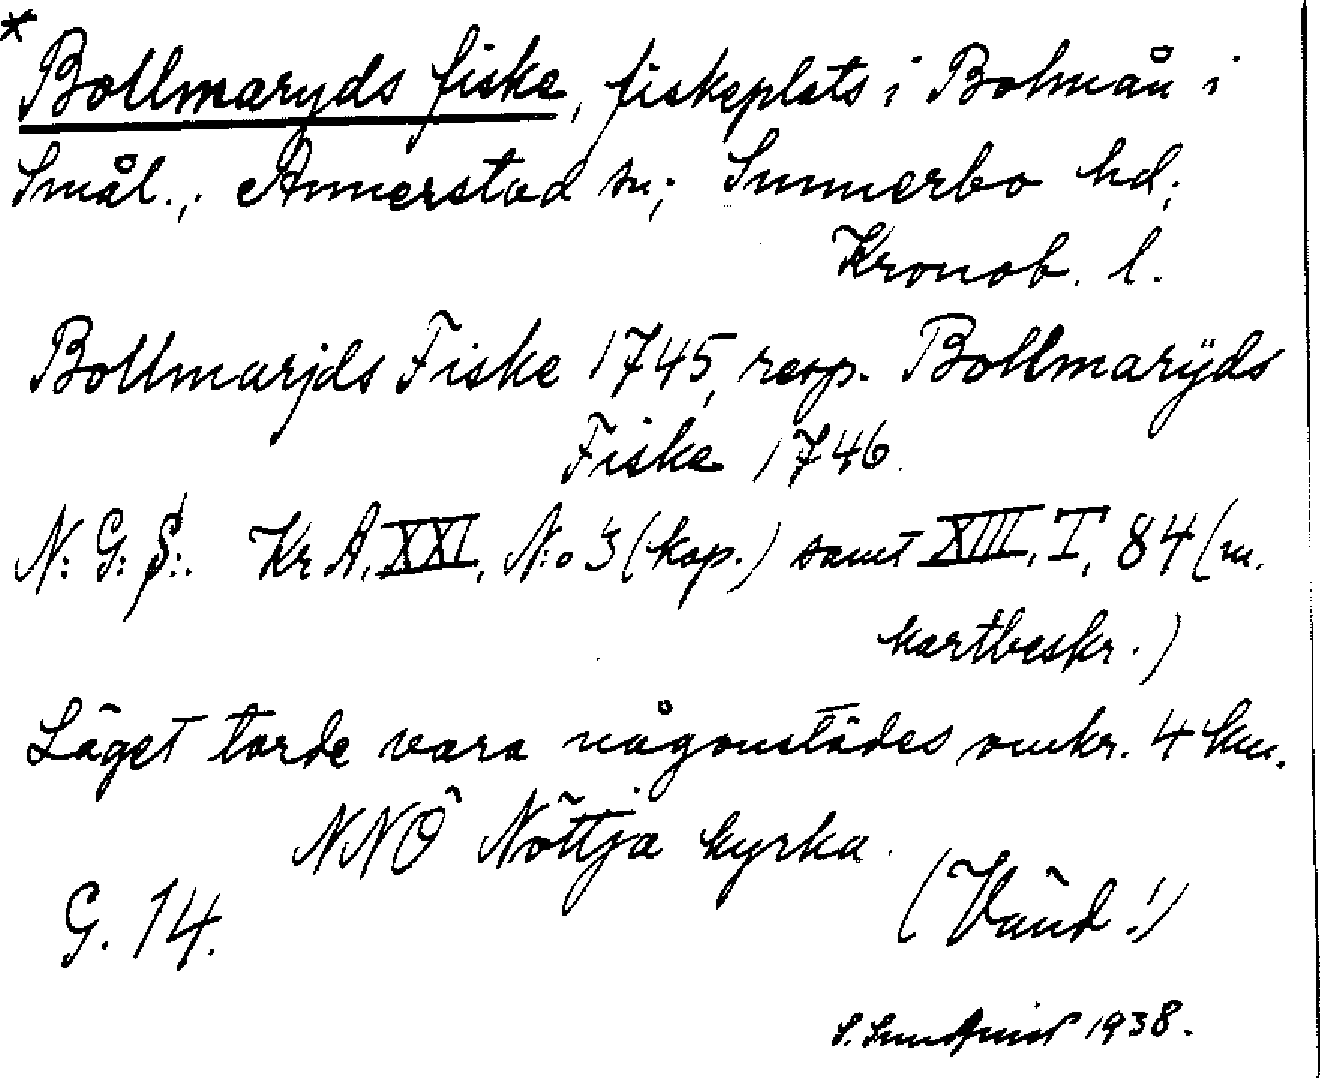 * Bollmaryds fiske, fiskeplats i Bolmån i
Smål., Annerstad sn; Sunnerbo hd;
Kronob. l.
Bollmarjds Fiske 1745, resp. Bollmarÿds
Fiske 1746.
N: G: S:. Kr A. XXI, N:o 3 (kop.) samt XIII, I, 84 (m.
kartbeskr.)
Läget torde vara någonstädes omkr. 4 km.
NNÖ Nöttja kyrka.
G. 14.
(Vänd!)
S. Sundquist 1938.